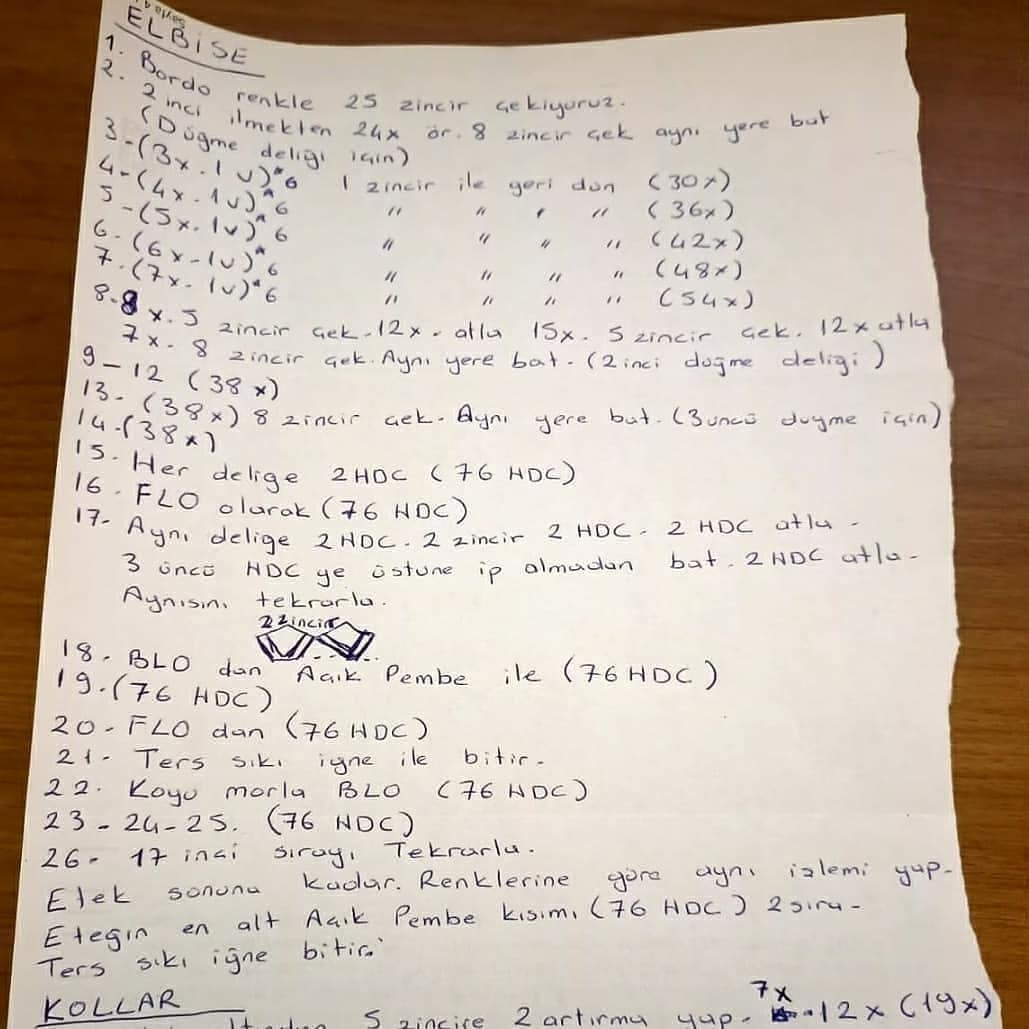 Sayfa 4
ELBiSE
1. Bordo renkle 25 zincir çekiyoruz.
2. 2 inci ilmekten 24x ör. 8 zincir çek aynı yere bat
(Düğme deliği için)
3-(3x. 1v)*6 1 zincir ile geri dön (30x)
4-(4x. 1v)*6 " " " " (36x)
5-(5x. 1v)*6 " " " " (42x)
6. (6x-1v)*6 " " " " (48x)
7. (7x- 1v)*6 " " " " (54x)
8. 8x. 5 zincir çek. 12x. atla 15x. 5 zincir çek. 12x atla
7x. 8 zincir çek. Aynı yere bat. (2 inci düğme deliği)
9-12 (38x)
13- (38x) 8 zincir çek. Aynı yere bat. (3 üncü duyme için)
14-(38x)
15. Her delige 2HDC (76 HDC)
16. FLO olarak (76 HDC)
17- Aynı delige 2HDC. 2 zincir 2 HDC. 2 HDC atla -
3 üncü HDC ye üstüne ip almadan bat. 2 HDC atla-
Aynısını tekrarla.
2 zincir
18. BLO dan Açık Pembe ile (76 HDC)
19. (76 HDC)
20- FLO dan (76 HDC)
21- Ters sıkı iğne ile bitir.
22. Koyu morla BLO (76 HDC)
23-24-25. (76 HDC)
26- 17 inci sırayı Tekrarla.
Etek sonuna kadar. Renklerine göre aynı izlemi yap-
Eteğin en alt Açık Pembe kısımı (76 HDC) 2 sıra-
Ters sıkı iğne bitir.
KOLLAR
5 zincire 2 artırma yap. 7x 12x (19x)